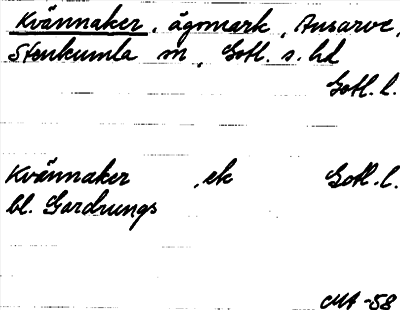 Kvännaker, ägomark, Ansarve,
Stenkumla sn, Gotl. s. hd
Gotl. l.
Kvännaker, ek Gotl. l.
bl. Gardrungs
MA -58